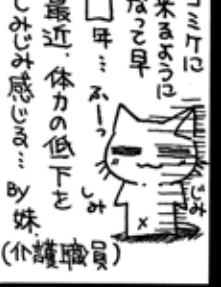 コミケに
来るように
なって早
□年…ふーっ
最近、体力の低下を
しみじみ感じる…By妹
(介護職員)
じみ
しみ